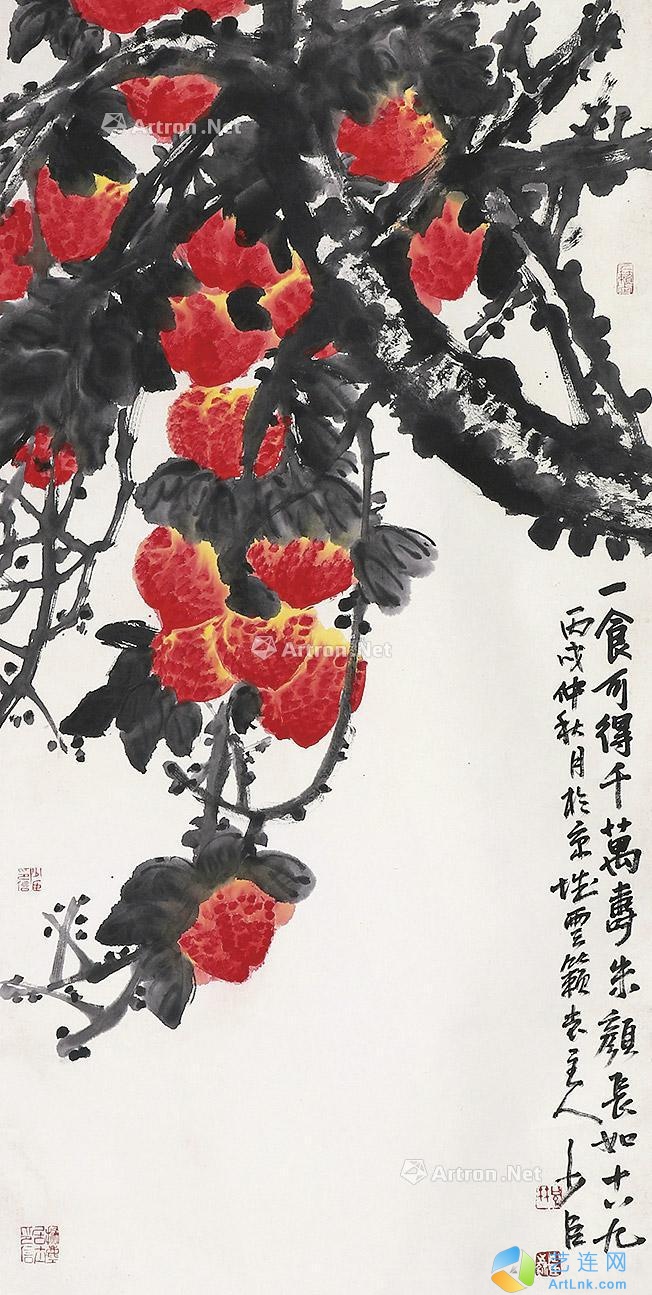 一食可得千萬壽朱顏長如十八九
丙戌仲秋月於京城雲籟
主人
少臣
Artron.Net
Artron.Net
Artron.Net
艺连网
ArtLnk.com